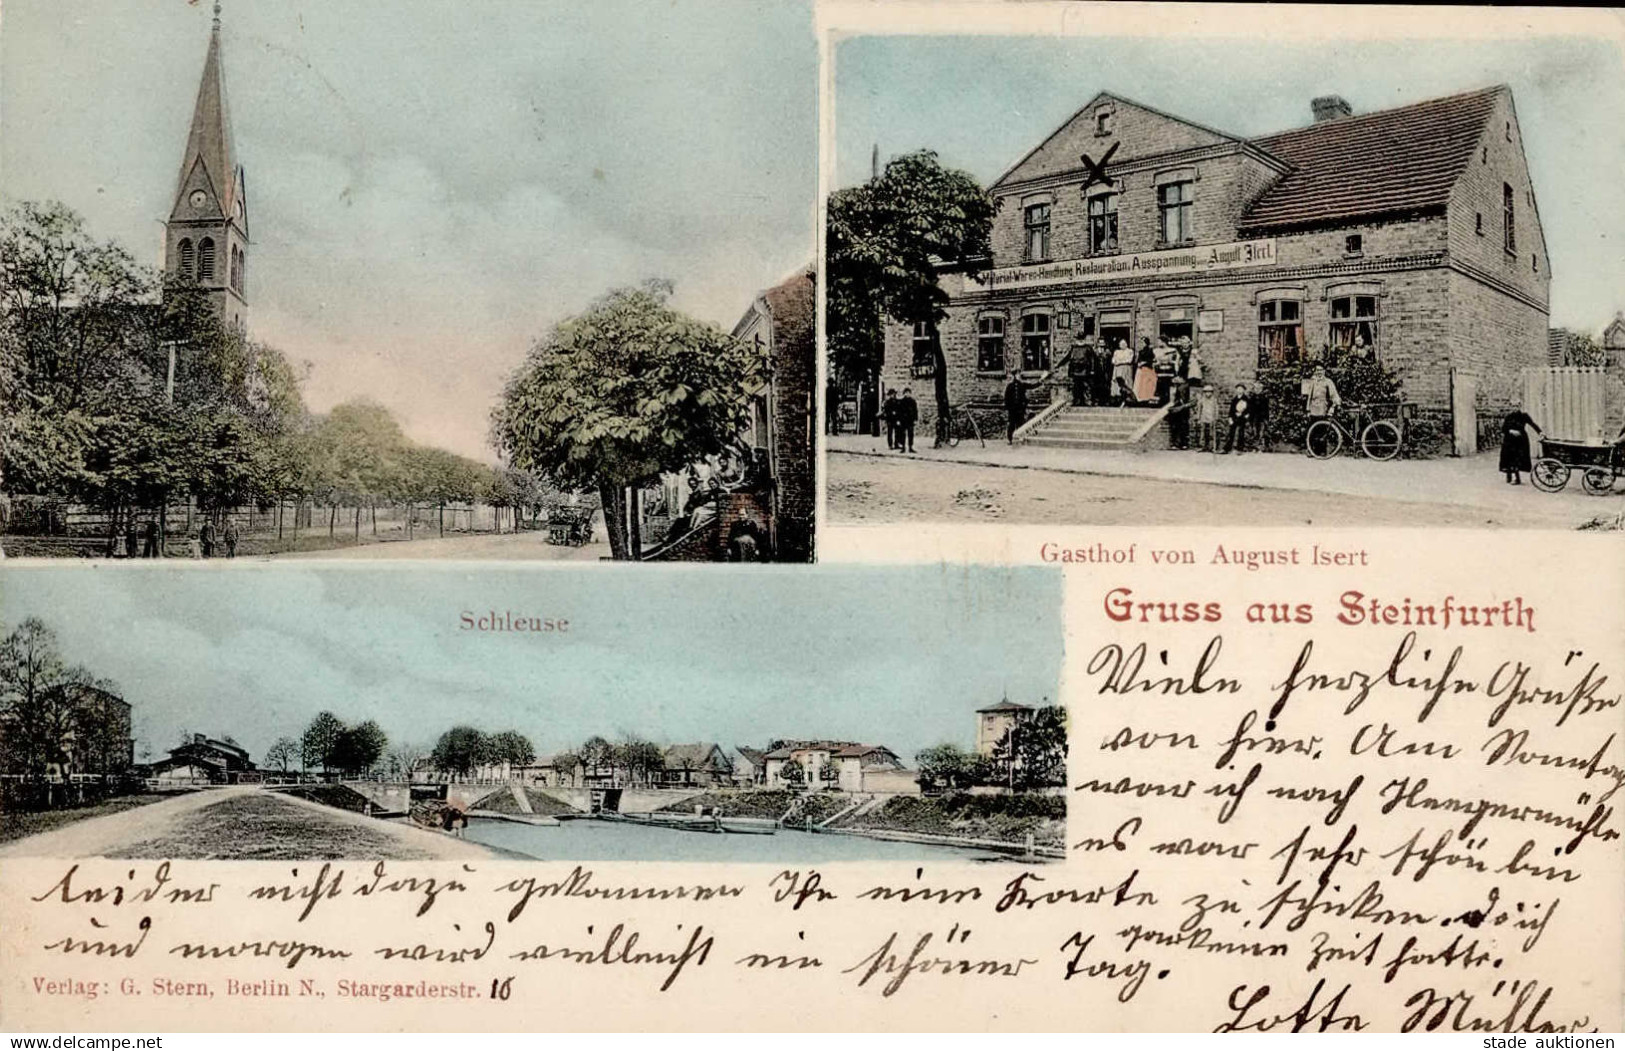 Material-Waren-Handlung Restauration, Ausspannung von August Isert.
Gasthof von August Isert
Gruss aus Steinfurth
Schleuse
Viele herzliche Grüße
von hier. Am Sonntag
war ich nach Heegermühle
es war sehr schön bin
leider nicht dazu gekommen Ihr eine Karte zu schicken. da ich
gar keine Zeit hatte.
und morgen wird vielleicht ein schöner Tag.
Lotte Müller
Verlag: G. Stern, Berlin N., Stargarderstr. 16
www.delcampe.net
stade auktionen